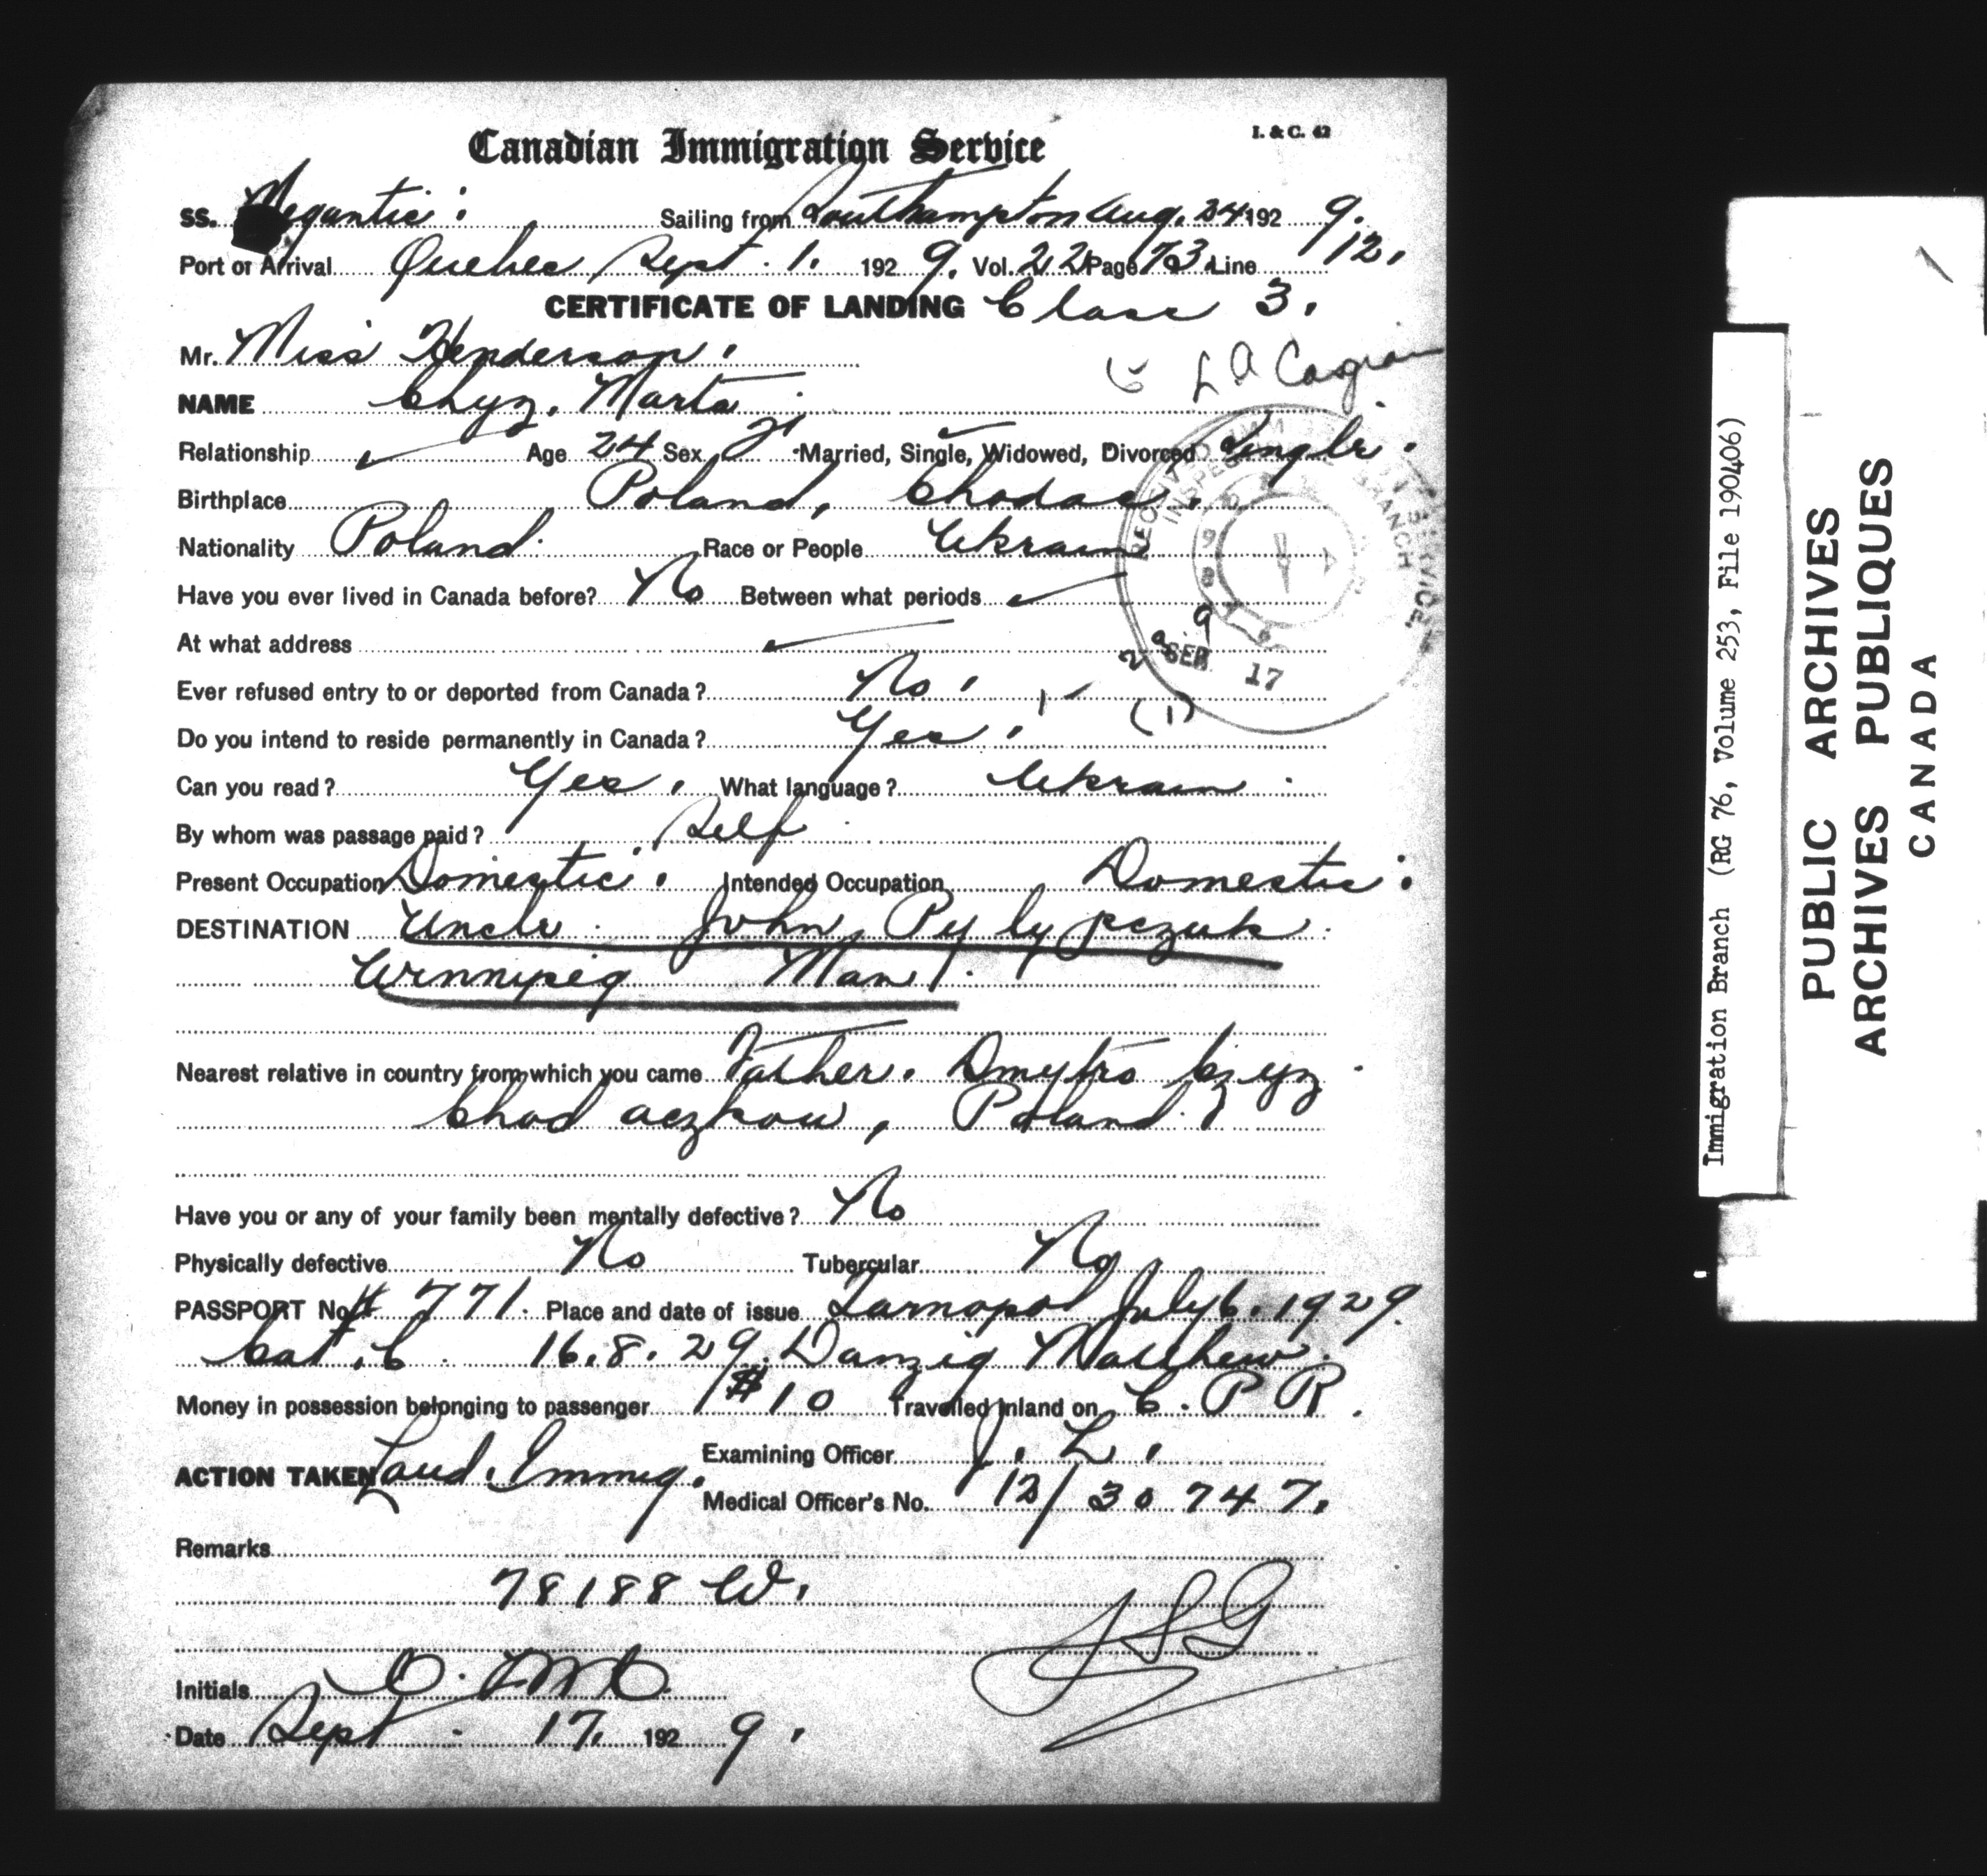 I. & C. 42
Canadian Immigration Service
SS. Megantic. Sailing from Southampton Aug. 24 192 9.
Port of Arrival Quebec Sept. 1. 192 9. Vol. 22 Page 73 Line 12.
CERTIFICATE OF LANDING Class 3.
Mr. Miss Henderson.
L A Casgrain
NAME Chyz, Marta
Relationship Age 24 Sex F. Married, Single, Widowed, Divorced Single.
Birthplace Poland, Chodac.
Nationality Poland. Race or People Ukrain
Have you ever lived in Canada before? No Between what periods
At what address
Ever refused entry to or deported from Canada? No.
Do you intend to reside permanently in Canada? Yes. (1)
Can you read? Yes. What language? Ukrain
By whom was passage paid? Self
Present Occupation Domestic. Intended Occupation Domestic.
DESTINATION Uncle. John Pylypczuk.
Winnipeg Man.
Nearest relative in country from which you came Father. Dmytro Czyz.
Chodaczkow, Poland.
Have you or any of your family been mentally defective? No
Physically defective No Tubercular No
PASSPORT No. # 771. Place and date of issue Tarnopol July 6. 1929.
Cat. C. 16.8.29. Danzig Matthew.
Money in possession belonging to passenger $10 Travelled inland on C. P R.
ACTION TAKEN Land. Immig. Examining Officer J. L.
Medical Officer's No. 12/30747.
Remarks
78188 W.
Initials
Date Sept. 17. 192 9.
RECEIVED IMMIGRATION SERVICE
INSPECTION BRANCH
SEP 17
Immigration Branch (RG 76, Volume 253, File 190406)
PUBLIC ARCHIVES
ARCHIVES PUBLIQUES
CANADA